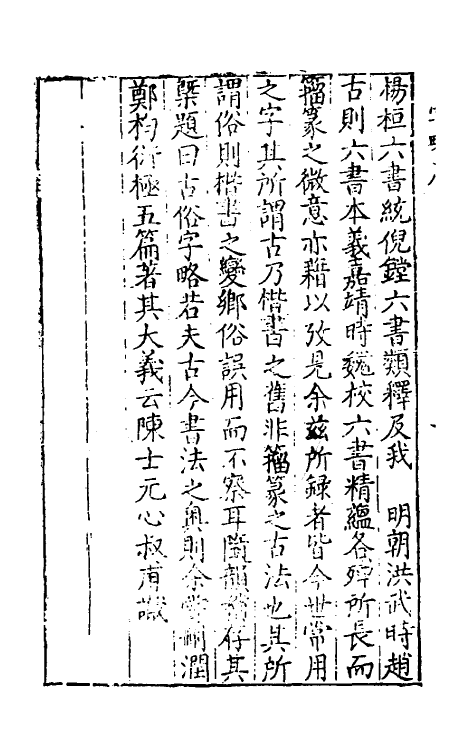 楊桓六書統倪鏜六書類釋及我　明朝洪武時趙
古則六書本義嘉靖時魏校六書精蘊各殫所長而
籀篆之微意亦藉以攷見余兹所録者皆今世常用
之字其所謂古乃楷書之舊非籀篆之古法也其所
謂俗則楷書之變鄉俗誤用而不察耳隨韻 存其
槩題曰古俗字略若夫古今書法之奥則余嘗 潤
鄭杓衍極五篇著其大義云陳士元心叔甫識